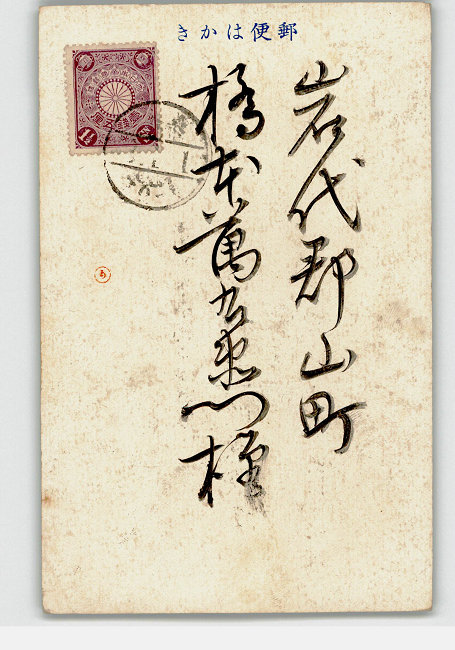 郵便はかき
岩代郡山町
橋本萬右衛門様
1½